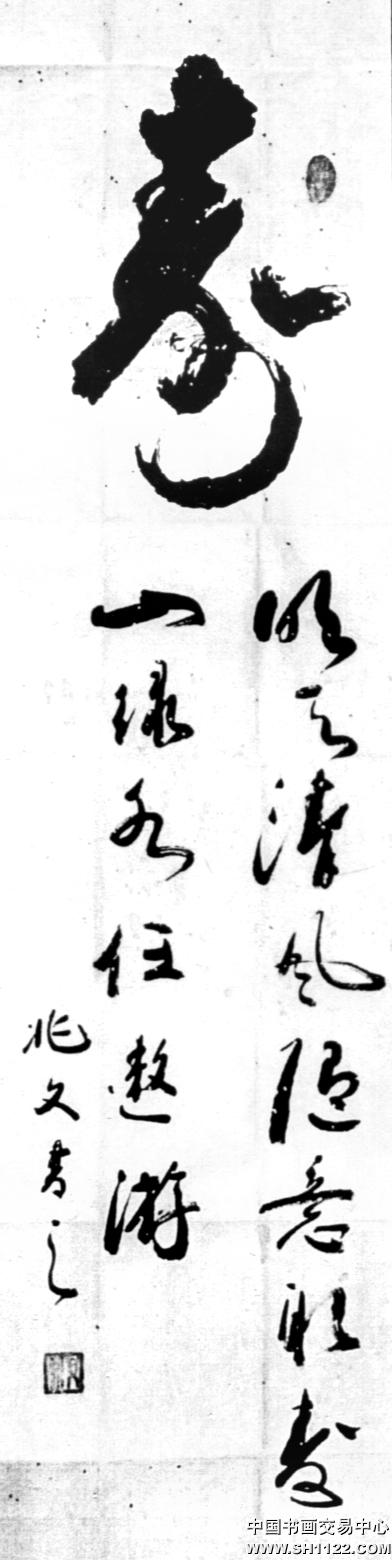 壽
明月清風隨意取青
山綠水任遨游
兆文書之
中国书画交易中心
www.SH1122.COM